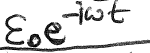 ε₀e^{-iωt}